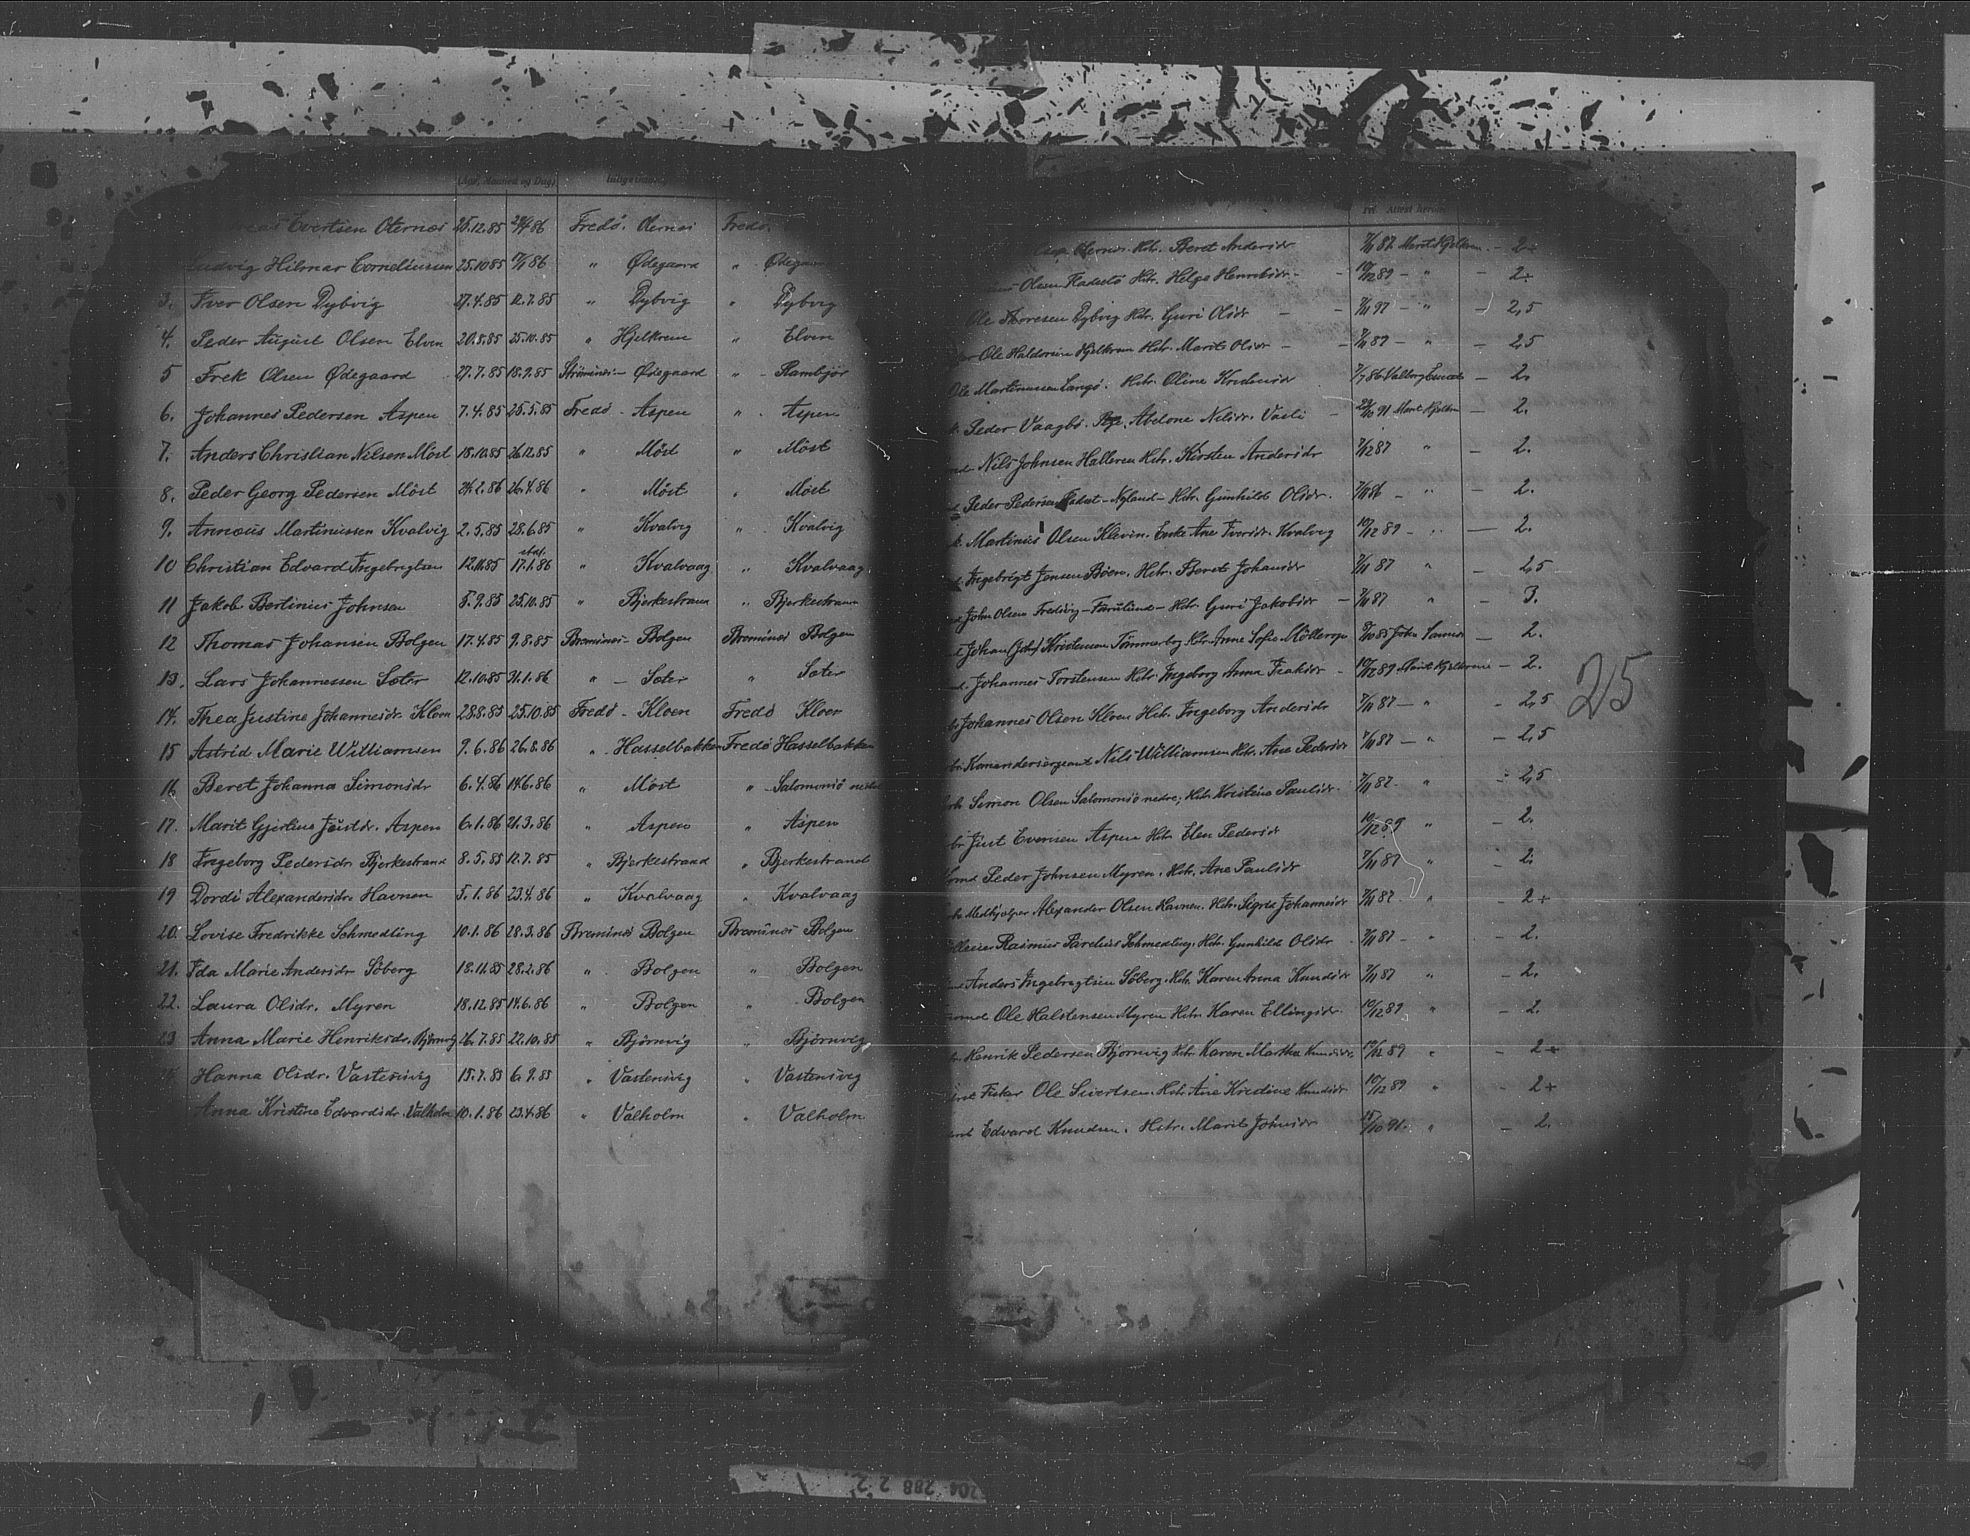 (Aar, Maaned og Dag)
Evertsen Oternes 25.12.85 86 Fredö. Oternes Fredö.
Ludvig Hilmar Corneliussen 25.10 85 86 " Ødegaard "
3. Iver Olsen Dybvig 27.4.85 12.7.85 " Dybvig " Dybvig
4. Peder August Olsen Elven 20.8.85 25.10.85 " Hjelkrem " Elven
5 Frek Olsen Ødegaard 27.7.85 18.9.85 Ødegaard "
6. Johannes Pedersen Aspen 7.4.85 25.5.85 Fredö - Aspen " Aspen
7. Anders Christian Nilsen Möst 18.10.85 26.12.85 " Möst " Möst
8. Peder Georg Pedersen Möst 24.2.86 26.4.86 " Möst " Möst
9. Annæus Martinussen Kvalvig 2.5.85 28.6.85 " Kvalvig " Kvalvig
10 Christian Edvard Ingebrigtsen 12.11.85 17.1.86 " Kvalvaag " Kvalvaag
11 Jakob Bertinius Johnsen 5.9.85 25.10.85 " Bjerkestrand " Bjerkestrand
12 Thomas Johansen Bolgen 17.4.85 9.8.85 Bremsnes - Bolgen Bremsnes Bolgen
13. Lars Johannessen Sæter 12.10.85 21.1.86 " - Sæter " Sæter
14. Thea Justine Johannesdr. Kloen 28.8.85 25.10.85 Fredö - Kloen Fredö Kloen
15 Astrid Marie Williamsen 9.6.86 26.8.86 " Hasselbakken Fredö Hasselbakken
16 Beret Johanna Simonsdr 6.4.86 14.6.86 " Möst " Salomonsö nedre
17. Marit Gjertine Justdr. Aspen 6.1.86 21.3.86 " Aspen " Aspen
18 Ingeborg Pedersdr Bjerkestrand 8.5.85 12.7.85 " Bjerkestrand " Bjerkestrand
19 Dordi Alexandersdr Havnen 5.1.86 23.4.86 " Kvalvaag " Kvalvaag
20. Lovise Fredrikke Schmedling 10.1.86 28.3.86 Bremsnes Bolgen Bremsnes Bolgen
21. Ida Marie Andersdr Söberg 18.11.85 28.2.86 " Bolgen " Bolgen
22. Laura Olsdr. Myren 18.12.85 14.6.86 " Bolgen " Bolgen
23 Anna Marie Henriksdr. Björnvig 26.7.85 22.10.85 " Björnvig " Björnvig
Hanna Olsdr. Vastensvig 15.7.85 6.9.85 " Vastensvig " Vastensvig
Anna Kristine Edvardsdr. Valholm 10.1.86 23.4.86 " Valholm " Valholm
Oternes. Htr. Beret Andersdr 87 Marit Hjelkrem - 2+
Olsen Htr. Helge Henriksdr - 89 - " - 2+
Ole Thoresen Dybvig Htr. Guri Olsdr - 97 - " - 2,5
Ole Haldorsen Hjelkrem Htr. Marit Olsdr - 89 - " - 2,5
Ole Martinussen Langö. Htr. Oline Knudsdr 86 - 2.
Peder Vaagbö. Abelone Nilsdr. 91 Marit Hjelkrem - 2.
Nils Johnsen Halleren Htr. Kirsten Andersdr 87 " - 2.
Peder Pedersen - Nyland - Htr. Gunhild Olsdr. 86 - " - 2.
Martinus Olsen Kleven. Enke Ane Iversdr. Kvalvig 89 - " - 2.
Ingebrigt Jensen Böen. Htr. Beret Johansdr 87 " - 2,5
John Olsen Fredvig - Htr. Guri Jakobsdr - 87 " - 3.
Johan Kristensen Htr. Anne Sofie Möllerop 85 John - 2.
Johannes Torstensen Htr. Ingeborg Anna Isaksdr - 89 Marit Hjelkrem - 2.
Johannes Olsen Kloen Htr. Ingeborg Andersdr 87 - " - 2,5
Komandersergeant Nils Williamsen Htr. Ane Pedersdr 87 - " - 2,5
Simon Olsen Salomonsö nedre; Htr. Kristine Paulsdr. 87. " - 2,5
Just Evensen Aspen Htr. Elen Pedersdr 89 " - 2.
Peder Johnsen Myren. Htr. Ane Paulsdr 87 " - 2.
Medhjælper Alexander Olsen Havnen. Htr. Sigrid Johannesdr 87 - " - 2+
Rasmus Parelius Schmedling. Htr. Gunhild Olsdr. 87 - " - 2.
Anders Ingebrigtsen Söberg. Htr. Karen Anna Knudsdr 87 " - 2.
Ole Halstensen Myren Htr. Karen Ellingsdr. 89 " - 2.
Henrik Pedersen Björnvig Htr. Karen Martha Knudsdr. 89 " - 2+
Fisker Ole Sivertsen. Htr. Ane Kristine Knudsdr 89 " - 2+
Edvard Knudsen. Htr. Marit Johnsdr 91. " - 2.
25
204 288 2 2